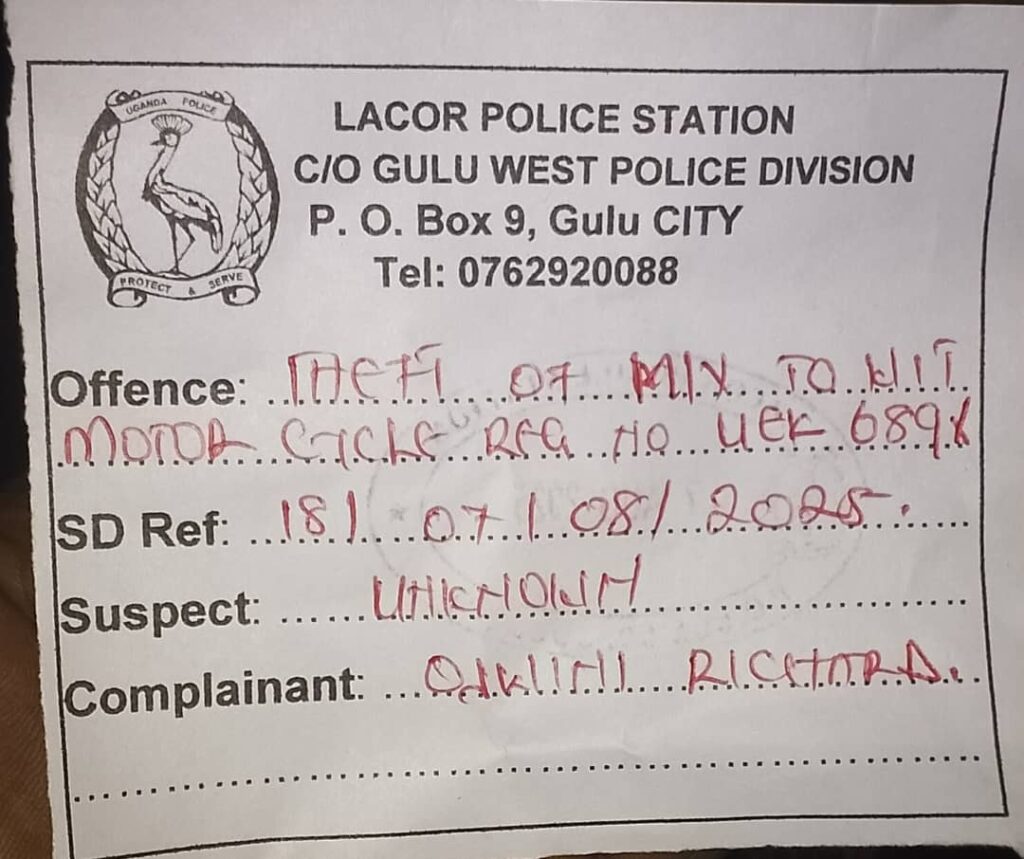 UGANDA POLICE
PROTECT & SERVE
LACOR POLICE STATION
C/O GULU WEST POLICE DIVISION
P. O. Box 9, Gulu CITY
Tel: 0762920088
Offence: THEFT OF M/V TO WIT
MOTOR CYCLE REG NO UEK 689X
SD Ref: 18/ 07/ 08/ 2025.
Suspect: UNKNOWN
Complainant: RICHARD.